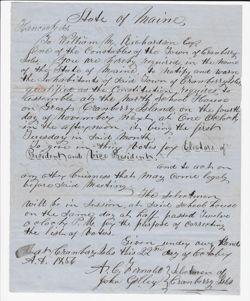 State of Maine
Hancock ss.
To William M. Richardson Esq.
One of the Constables of the Town of Cranberry
Isles. You are hereby required in the name
of the State of Maine to notify and warn
the Inhabitants of said Town of Cranberry Isles
qualified as the Constitution requires, to
assemble at the North School House
on Great Cranberry Island on the fourth
day of November Next, at One O'clock
in the afternoon, it being the first
Tuesday in said Month
To give in their Votes for Electors of
President and Vice President
and to act on
any other business that may come legally
before said Meeting
The Selectmen
will be in session at said School House
on the same day at half passed twelve
o'clock P.M. for the purpose of correcting
the list of Voters
Given under our Hand
at Cranberry Isles this 22nd day of October
A.D. 1856
Selectmen of
John Gilley Cranberry Isles